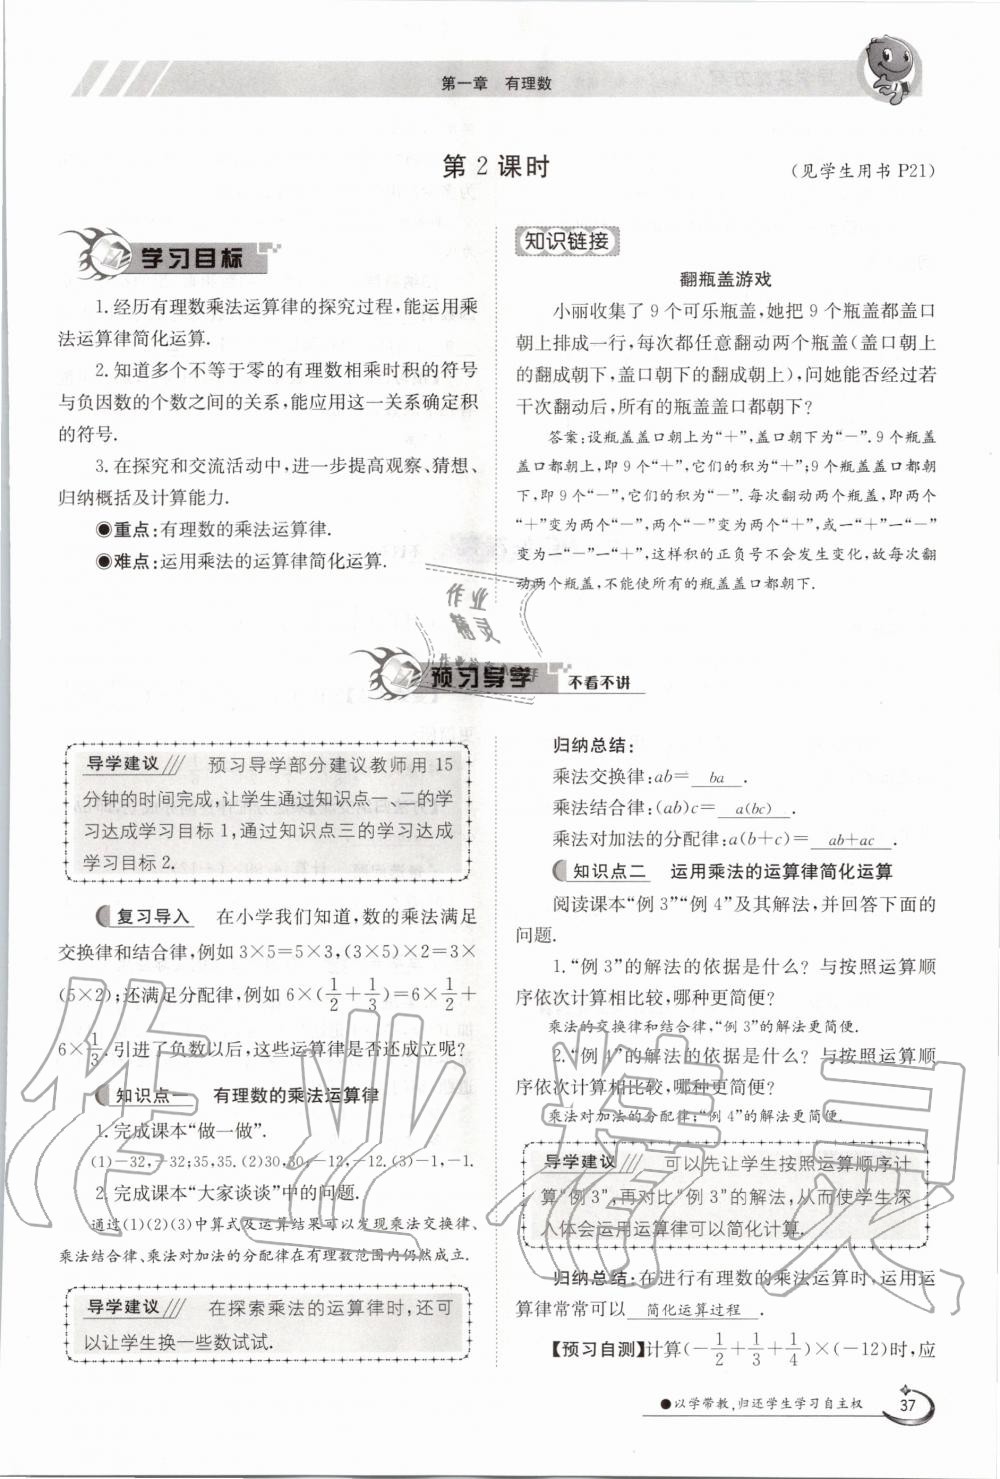 第一章　有理数
第 2 课时
(见学生用书 P21)
学习目标
1. 经历有理数乘法运算律的探究过程,能运用乘
法运算律简化运算.
2. 知道多个不等于零的有理数相乘时积的符号
与负因数的个数之间的关系,能应用这一关系确定积
的符号.
3. 在探究和交流活动中,进一步提高观察、猜想、
归纳概括及计算能力.
◉重点:有理数的乘法运算律.
◉难点:运用乘法的运算律简化运算.
知识链接
翻瓶盖游戏
小丽收集了 9 个可乐瓶盖,她把 9 个瓶盖都盖口
朝上排成一行,每次都任意翻动两个瓶盖(盖口朝上
的翻成朝下,盖口朝下的翻成朝上),问她能否经过若
干次翻动后,所有的瓶盖盖口都朝下?
答案:设瓶盖盖口朝上为“+”,盖口朝下为“-”. 9 个瓶盖
盖口都朝上,即 9 个“+”,它们的积为“+”;9 个瓶盖盖口都朝
下,即 9 个“-”,它们的积为“-”. 每次翻动两个瓶盖,即两个
“+”变为两个“-”,两个“-”变为两个“+”,或一“+”一“-”
变为一“-”一“+”,这样积的正负号不会发生变化,故每次翻
动两个瓶盖,不能使所有的瓶盖盖口都朝下.
作业
精灵
预习导学
不看不讲
导学建议 预习导学部分建议教师用 15
分钟的时间完成,让学生通过知识点一、二的学
习达成学习目标 1,通过知识点三的学习达成
学习目标 2.
复习导入 在小学我们知道,数的乘法满足
交换律和结合律,例如 3×5=5×3,(3×5)×2=3×
(5×2);还满足分配律,例如 6×(1/2+1/3)=6×1/2+
6×1/3. 引进了负数以后,这些运算律是否还成立呢?
知识点一 有理数的乘法运算律
1. 完成课本“做一做”.
(1)-32,-32;35,35. (2)30,30,-12,-12. (3)-1,-1.
2. 完成课本“大家谈谈”中的问题.
通过(1)(2)(3)中算式及运算结果可以发现乘法交换律、
乘法结合律、乘法对加法的分配律在有理数范围内仍然成立.
导学建议 在探索乘法的运算律时,还可
以让学生换一些数试试.
归纳总结:
乘法交换律:ab= ba .
乘法结合律:(ab)c= a(bc) .
乘法对加法的分配律:a(b+c)= ab+ac .
知识点二 运用乘法的运算律简化运算
阅读课本“例 3”“例 4”及其解法,并回答下面的
问题.
1. “例 3”的解法的依据是什么? 与按照运算顺
序依次计算相比较,哪种更简便?
乘法的交换律和结合律,“例 3”的解法更简便.
2. “例 4”的解法的依据是什么? 与按照运算顺
序依次计算相比较,哪种更简便?
乘法对加法的分配律;“例 4”的解法更简便.
导学建议 可以先让学生按照运算顺序计
算“例 3”,再对比“例 3”的解法,从而使学生深
入体会运用运算律可以简化计算.
归纳总结:在进行有理数的乘法运算时,运用运
算律常常可以 简化运算过程 .
【预习自测】计算(-1/2+1/3+1/4)×(-12)时,应
●以学带教,归还学生学习自主权
37
作业精灵